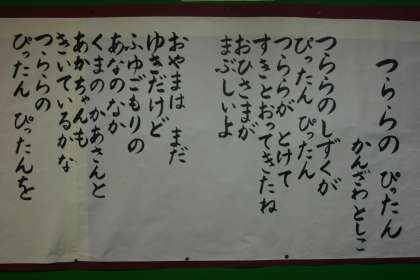 つららの ぴったん
かんざわとしこ
つららのしずくが
ぴったん ぴったん
つららが とけて
すきとおってきたね
おひさまが
まぶしいよ
おやまは まだ
ゆきだけど
ふゆごもりの
あなのなか
くまのかあさんと
あかちゃんも
きいているかな
つららの
ぴったん ぴったんを